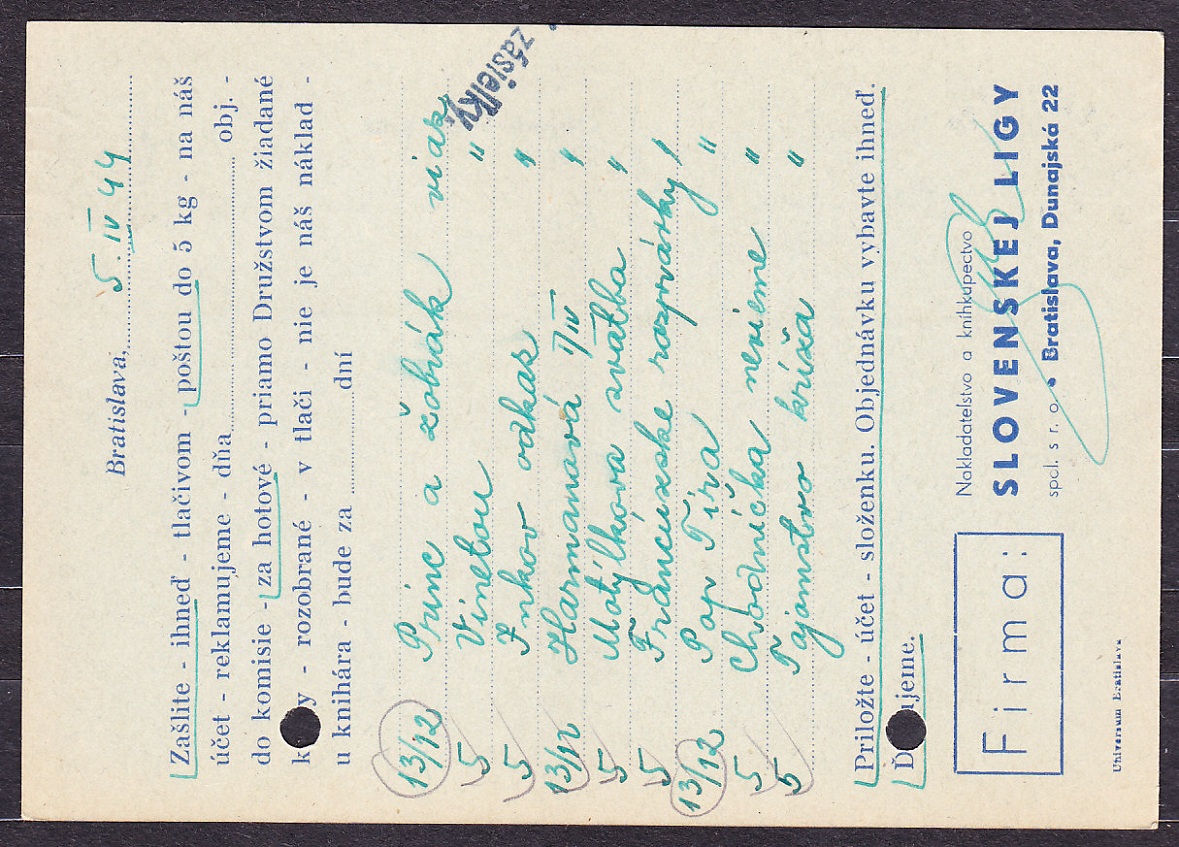 Bratislava, 5. IV 44
Zašlite - ihneď - tlačivom - poštou do 5 kg - na náš
účet - reklamujeme - dňa obj. -
do komisie - za hotové - priamo Družstvom žiadané
k y - rozobrané - v tlači - nie je náš náklad -
u knihára - bude za dní
zásielky
13/12 Princ a žobrák viak
5 Vinetou "
5 Inkov odkaz "
13/12 Harmanová "
5 Motýlkova svatba "
5 Francúzske rozprávky "
13/12 Pap Tira "
5 Chodníčka nevieme "
5 Tajomstvo kríža "
Priložte - účet - složenku. Objednávku vybavte ihneď.
Ď ujeme.
Firma:
Nakladateľstvo a kníhkupectvo
SLOVENSKEJ LIGY
spol. s r. o. • Bratislava, Dunajská 22
Universum Bratislava